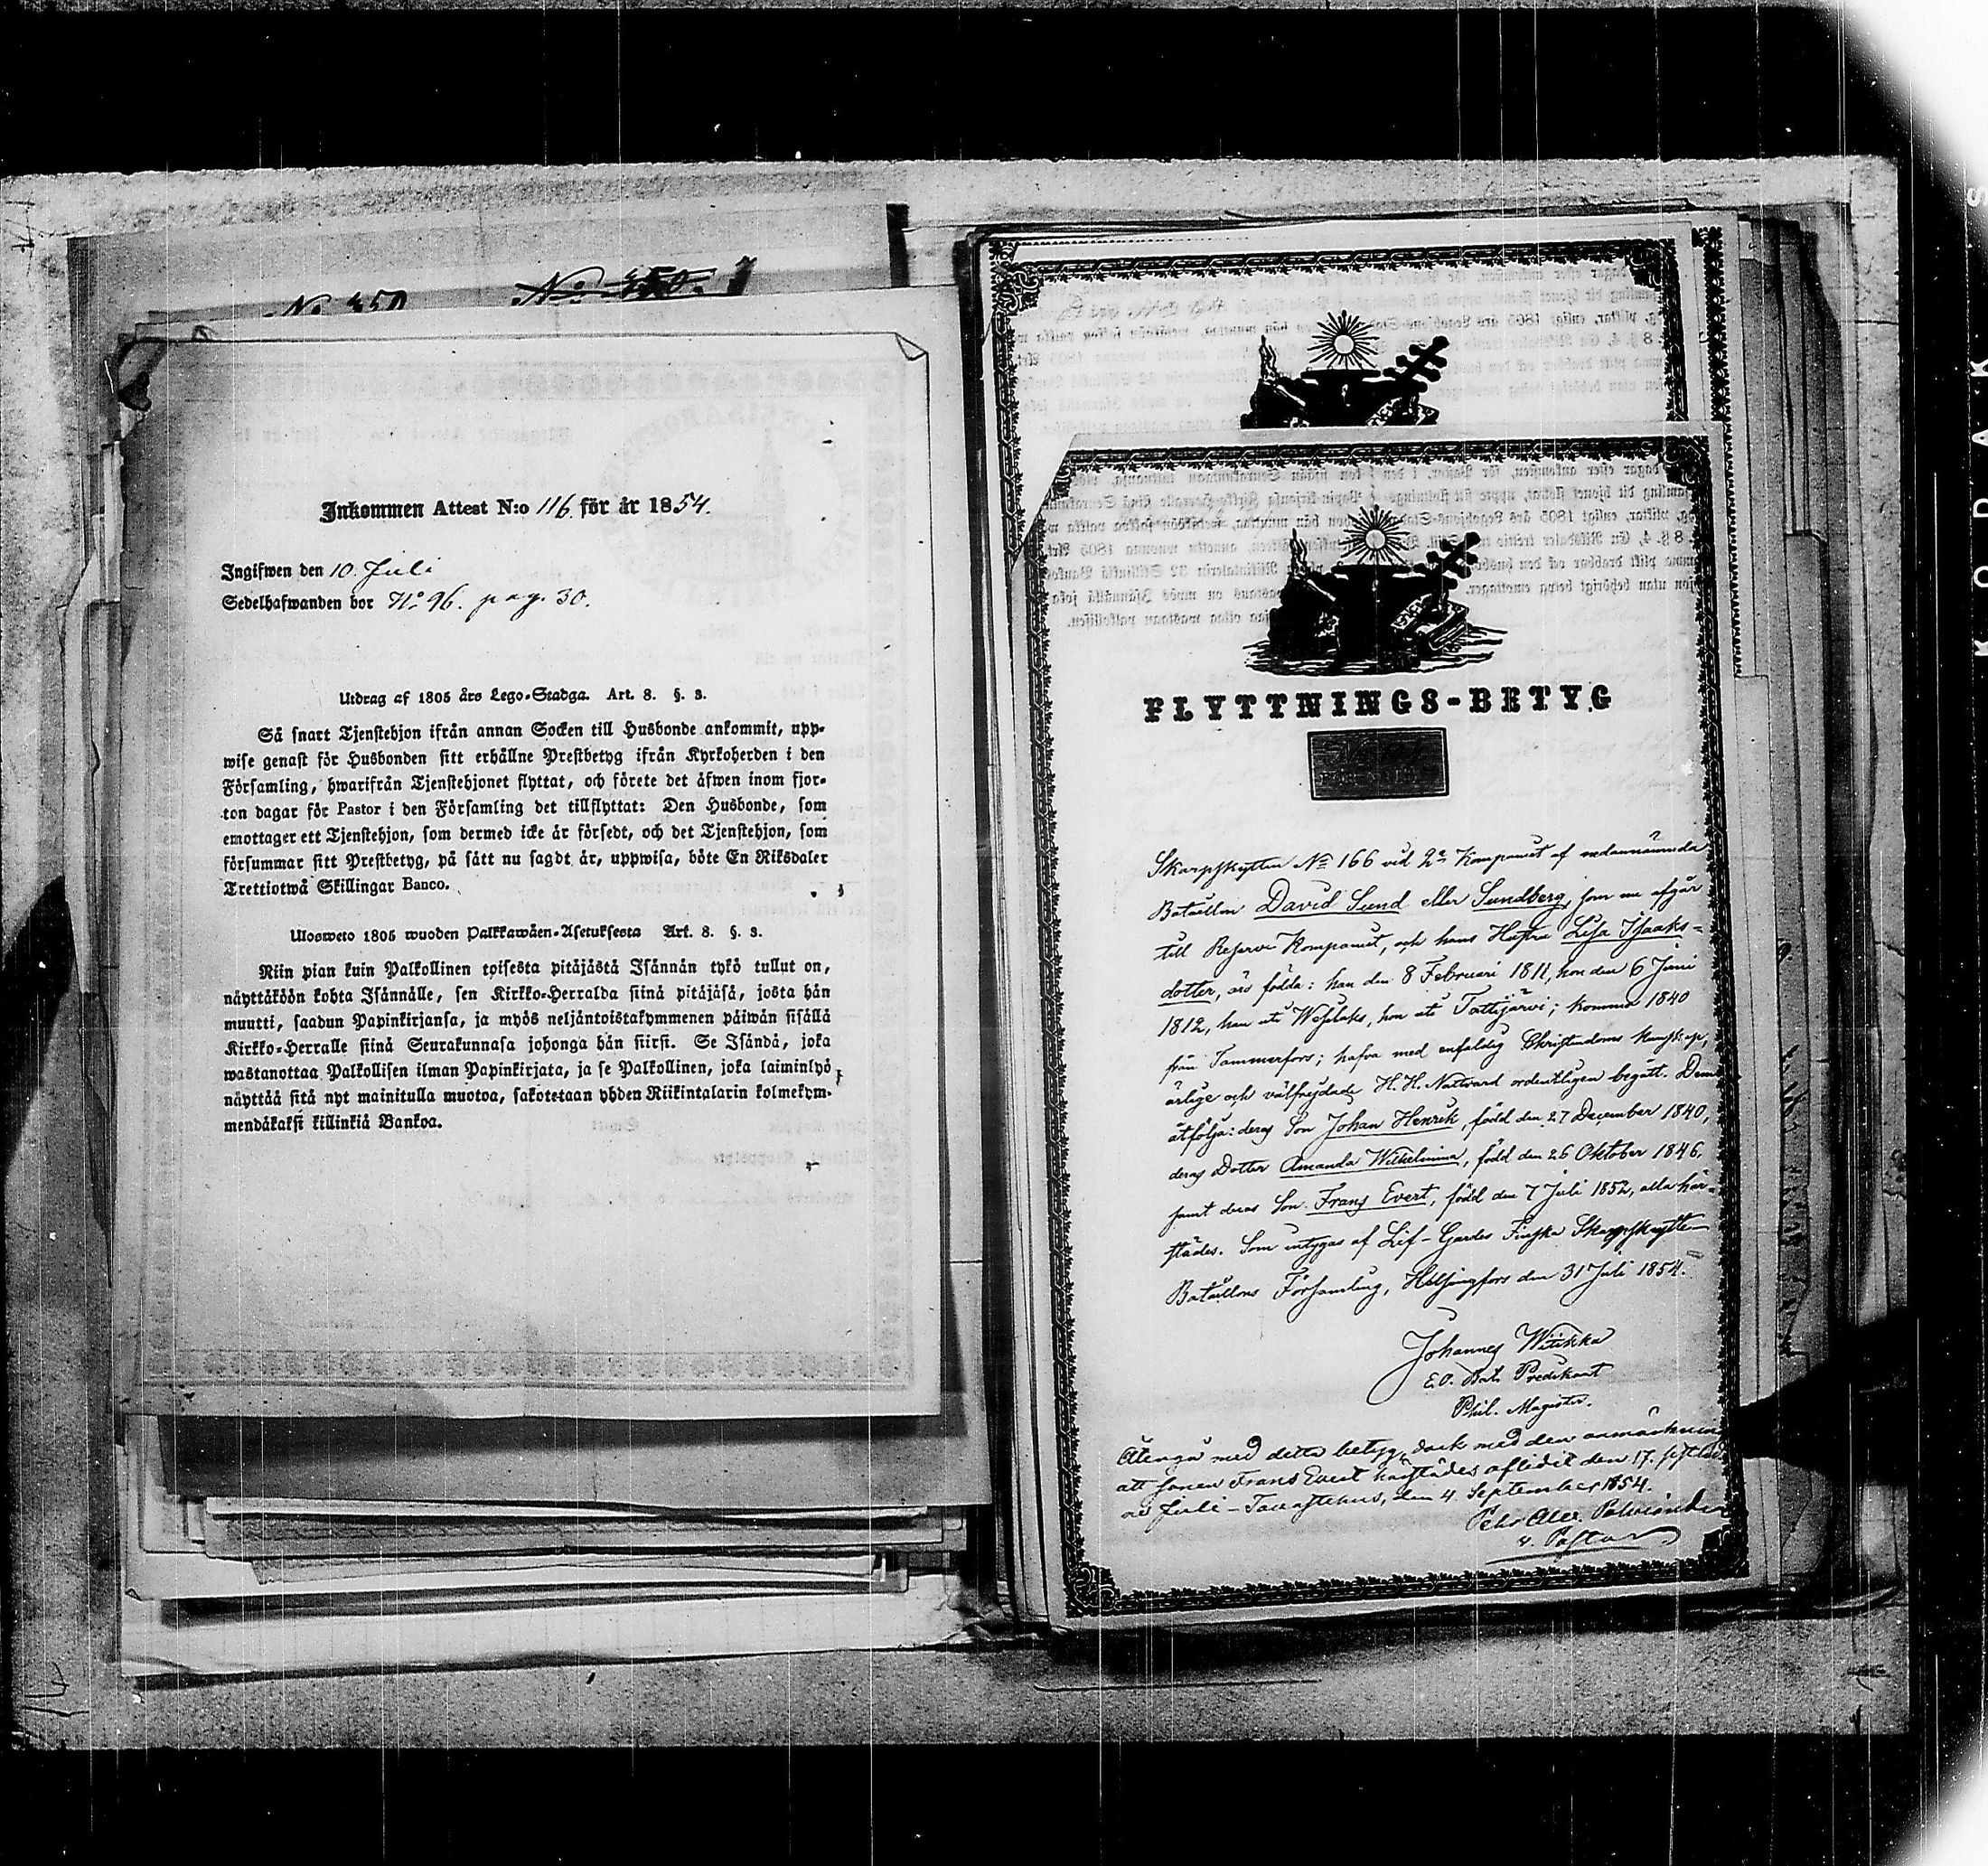 No 350 No 350.
Inkommen Attest N:o 116. för år 1854.
Ingifwen den 10. Juli
Sedelhafwanden bor No 96. pag. 30.
Utdrag af 1805 års Lego-Stadga. Art. 8. §. 3.
Så snart Tjenstehjon ifrån annan Socken till Husbonde ankommit, upp-
wise genast för Husbonden sitt erhållne Prestbetyg ifrån Kyrkoherden i den
Församling, hwarifrån Tjenstehjonet flyttat, och förete det äfwen inom fjor-
ton dagar för Pastor i den Församling det tillflyttat: Den Husbonde, som
emottager ett Tjenstehjon, som dermed icke är försedt, och det Tjenstehjon, som
försummar sitt Prestbetyg, på sätt nu sagdt är, uppwisa, böte En Riksdaler
Trettiotwå Skillingar Banco.
Ulosweto 1805 wuoden Palkkawäen-Asetuksesta Art. 8. §. 3.
Niin pian kuin Palkollinen toisesta pitäjästä Isännän tykö tullut on,
näyttäköön kohta Isännälle, sen Kirkko-Herralda siinä pitäjäsä, josta hän
muutti, saadun Papinkirjansa, ja myös neljäntoistakymmenen päiwän sisällä
Kirkko-Herralle siinä Seurakunnasa johonga hän siirsi. Se Isändä, joka
wastanottaa Palkollisen ilman Papinkirjata, ja se Palkollinen, joka laiminlyö
näyttää sitä nyt mainitulla muotoa, sakotetaan yhden Riikintalarin kolmekym-
mendäkaksi killinkiä Bankoa.
FLYTTNINGS-BETYG
Skarpskytten No 166 vid 2a Kompaniet af nedannämnda
Bataillon David Sund eller Sundberg, som nu afgår
till Reserve Kompaniet, och hans Hustru Lisa Isaaks-
dotter, äro födda: han den 8 Februari 1811, hon den 6 Juni
1812, han uti Wesilaks, hon uti Tottijärvi; kommo 1840
från Tammerfors; hafva med enfaldig Christendoms kunskap,
ärlige och välfrejdade H. H. Nattvard ordentligen begått. Dem
åtfölja: deras Son Johan Henrik, född den 27 December 1840,
deras Dotter Amanda Wilhelmina, född den 26 Oktober 1846,
samt deras Son Frans Evert, född den 7 Juli 1852, alla här-
städes. Som intygas af Lif-Gardes Finska Skarpskytte-
Bataillons Församling, Helsingfors den 31 Juli 1854.
Johannes Witikka
E.O. Bat. Predikant
Phil. Magister.
Återgår med detta betyg, dock med den anmärkning
att sonen Frans Evert härstädes aflidit den 17. sistled-
ne Juli - Tavastehus, den 4. September 1854.
Pehr Alex.
v. Pastor
KODAK S